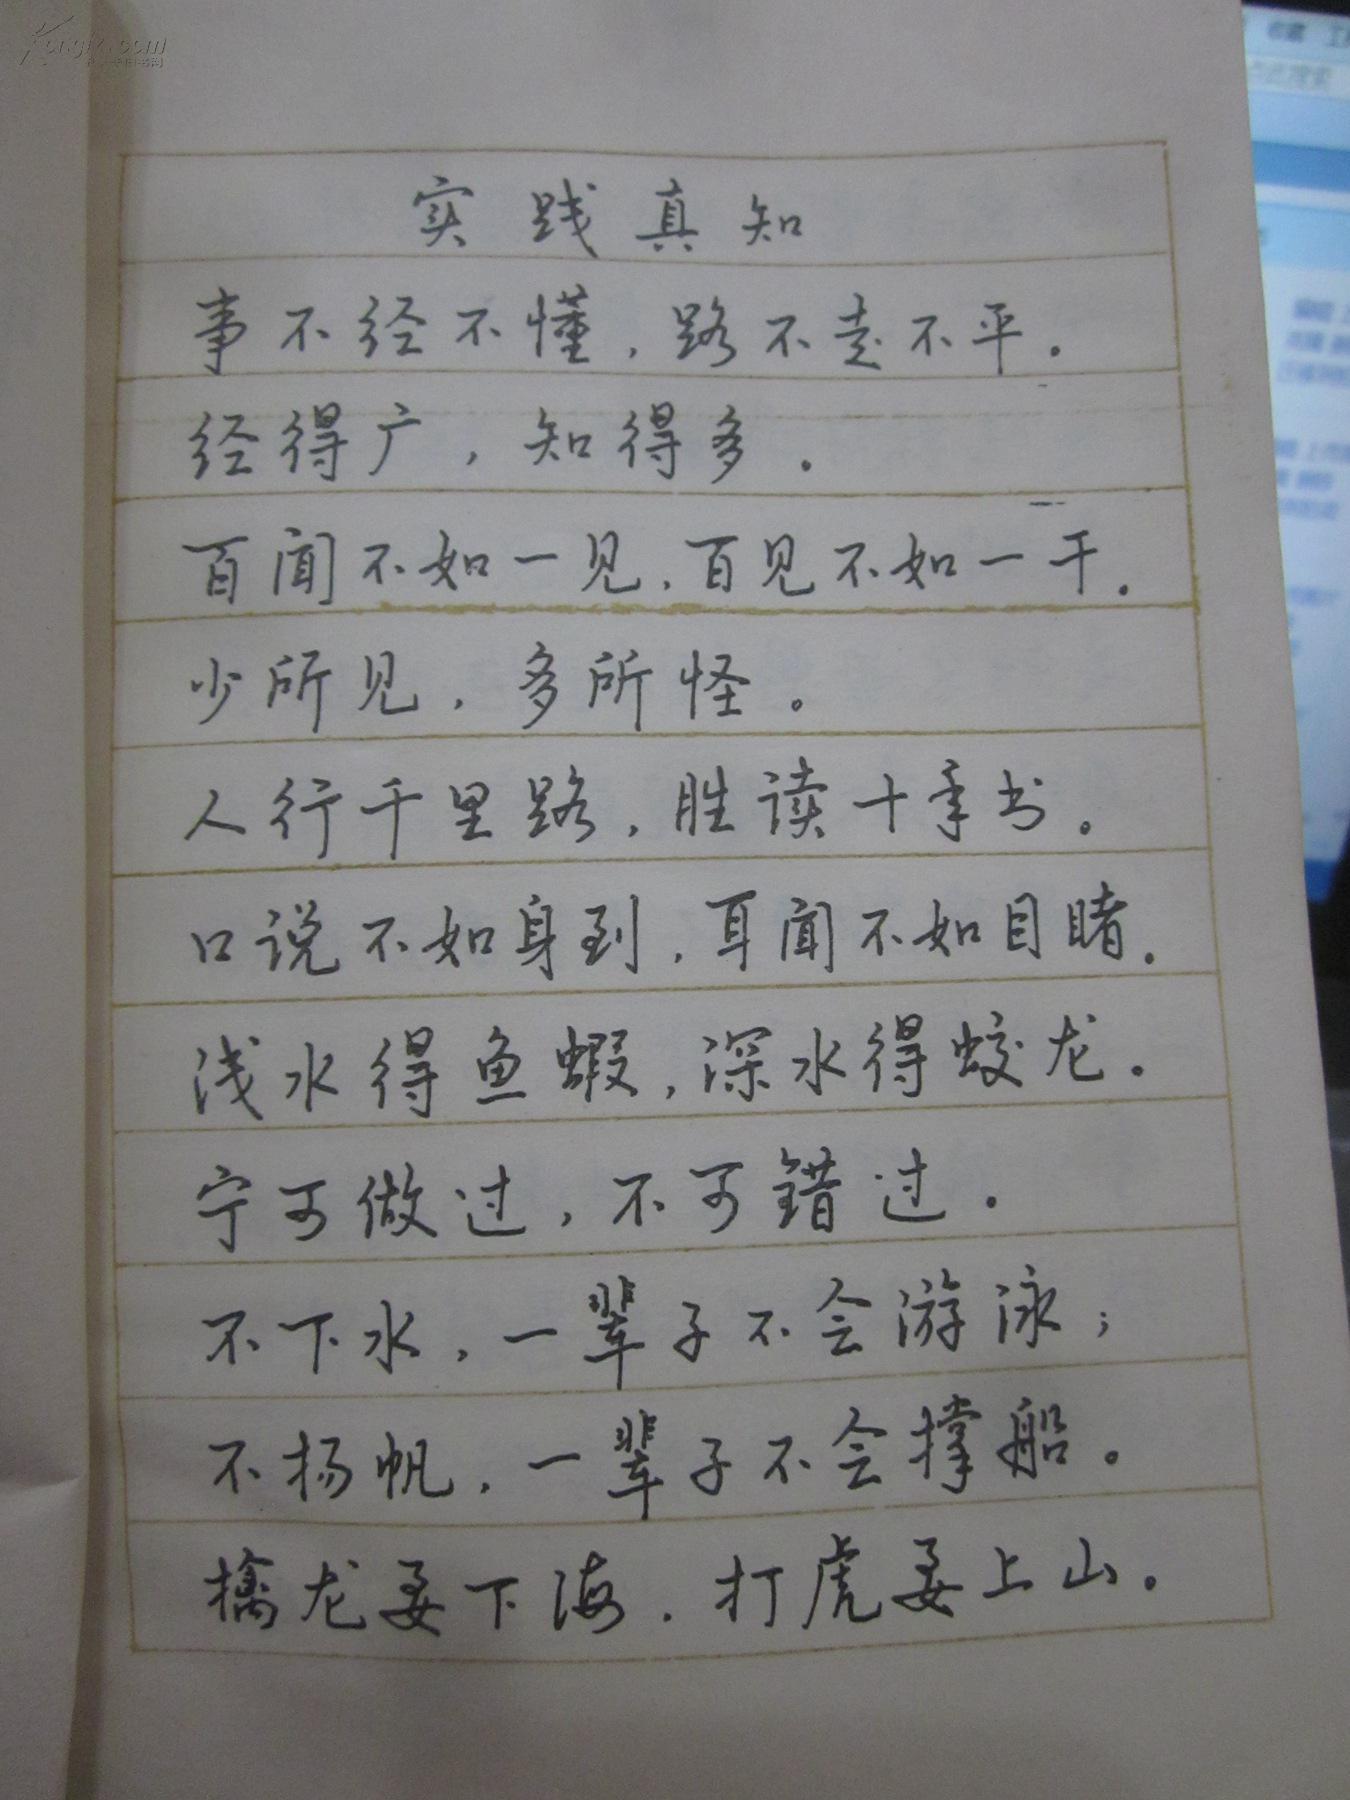 实践真知
事不经不懂，路不走不平。
经得广，知得多。
百闻不如一见，百见不如一干。
少所见，多所怪。
人行千里路，胜读十年书。
口说不如身到，耳闻不如目睹。
浅水得鱼蝦，深水得蛟龙。
宁可做过，不可错过。
不下水，一辈子不会游泳；
不扬帆，一辈子不会撑船。
擒龙要下海，打虎要上山。